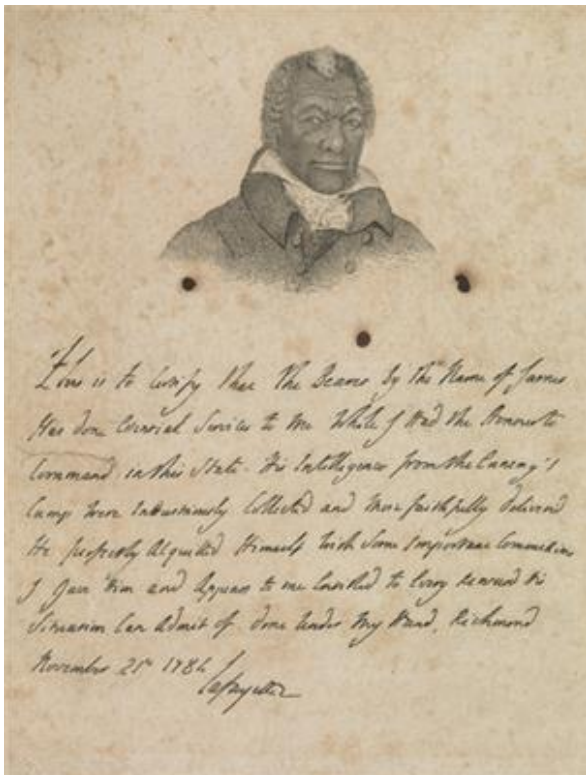 This is to Certify that the Bearer By the Name of James
Has done Essential Services to Me While I Had the Honour to
Command in this State. His Intelligences from the Enemy's
Camp were Industriously Collected and More faithfully deliver'd
He perfectly Acquitted Himself with Some Important Commissions
I Gave Him and Appears to me Entitled to Every Reward His
Situation Can Admit of. Done Under My Hand, Richmond
November 21st 1784
Lafayette